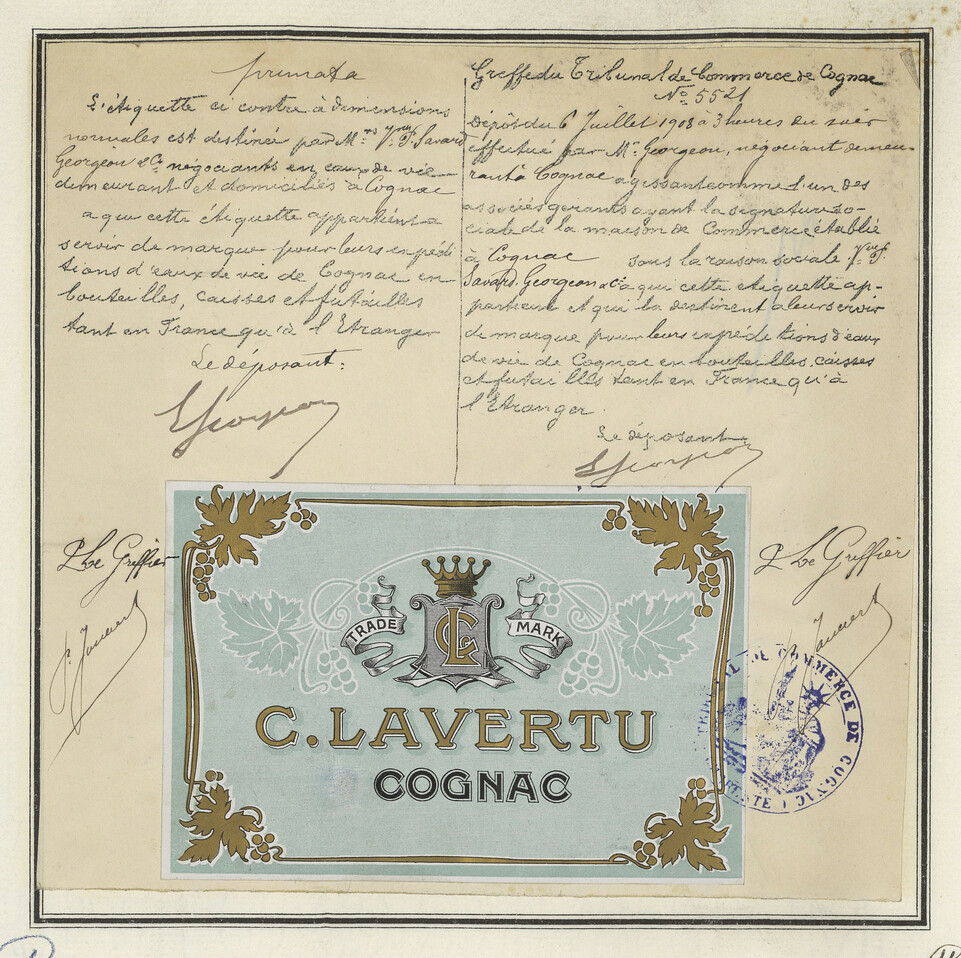 primata
L'étiquette ci contre à dimensions
normales est destinée par Mrs Vve P. Savard
Georgeon & Co négociants en eaux de vie
demeurant et domiciliés à Cognac
a qui cette étiquette appartient a
servir de marque pour leurs expédi
tions d'eaux de vie de Cognac en
bouteilles, caisses et futailles
tant en France qu'à l'Etranger
Le déposant:
Greffe du Tribunal de Commerce de Cognac
No 5521
Dépôt du 6 Juillet 1908 à 3 heures du soir
effectué par Mr Georgeon, négociant demeu-
rant à Cognac agissant comme l'un des
associés gerants ayant la signature so-
ciale de la maison de Commerce établie
à Cognac sous la raison sociale Vve P.
Savard Georgeon & Co à qui cette étiquette ap-
partient et qui la destinent a leur servir
de marque pour leurs expéditions d'eaux
de vie de Cognac en bouteilles, caisses
et futailles tant en France qu'à
l'Etranger.
Le déposant
P Le Greffier
P Le Greffier
TRADE MARK
C. LAVERTU
COGNAC
TRIBUNAL DE COMMERCE DE COGNAC